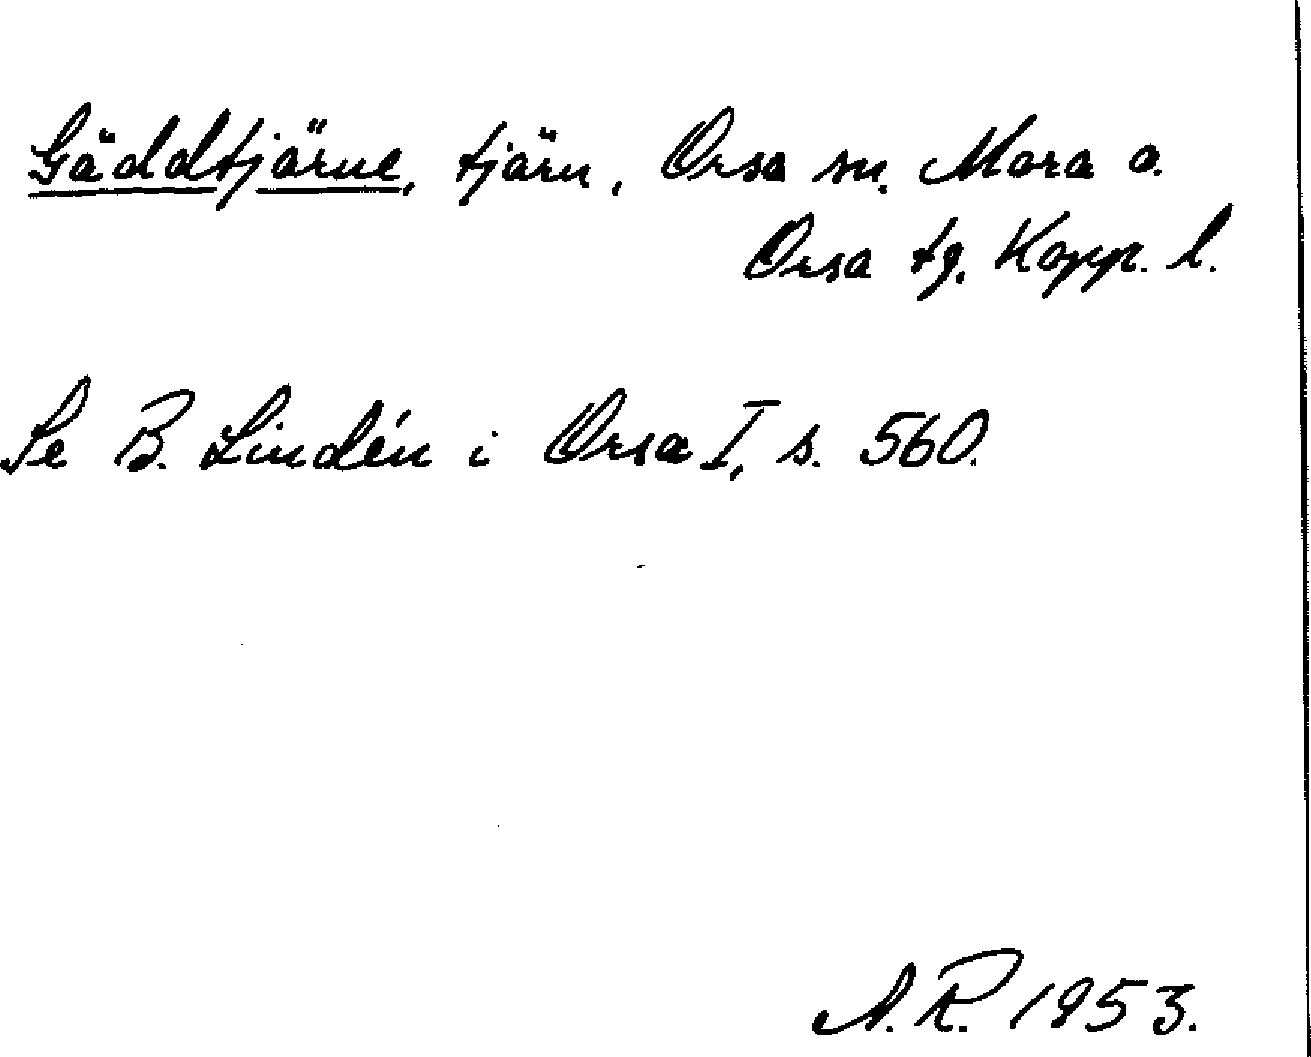 Gäddtjärne, tjärn, Orsa sn. Mora o.
Orsa tg. Kopp. l.
Se B. Lindén i Orsa I, s. 560.
A.R. 1953.